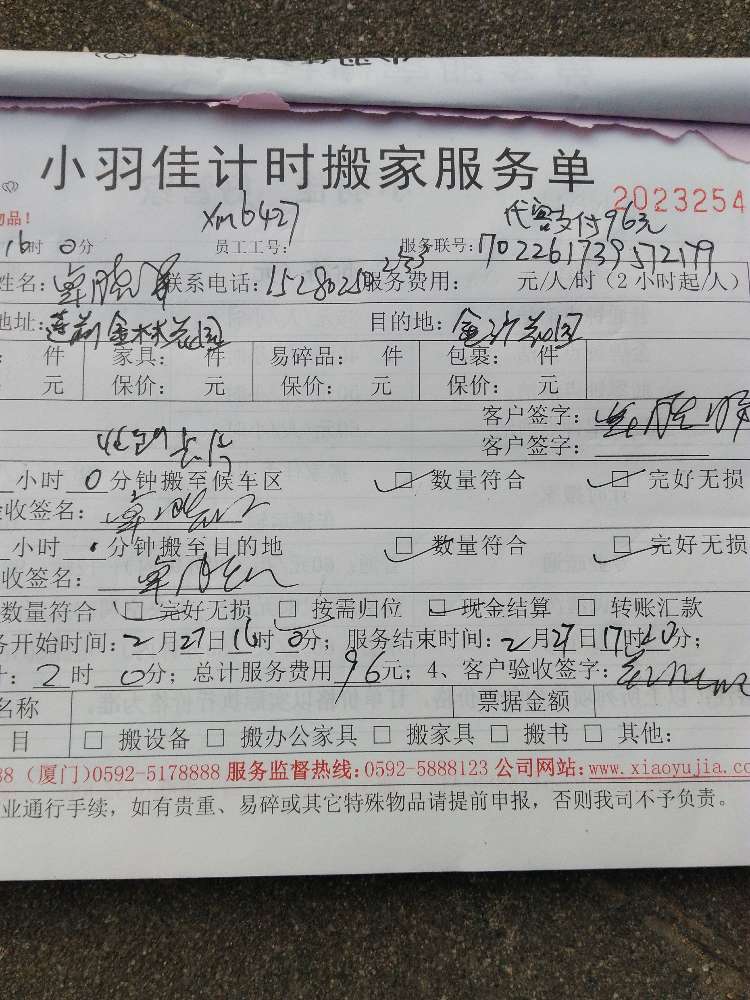 小羽佳计时搬家服务单
2023254
物品！
xm6427
代客支付96元
16时0分 员工工号: 服务联号:702261739572179
姓名: 联系电话:15280250 2533 服务费用: 元/人/时（2小时起/人）
地址:莲前金林花园 目的地:金沙花园
: 件 家具: 件 易碎品: 件 包裹: 件
: 元 保价: 元 保价: 元 保价: 元
客户签字:
客户签字:
小时0分钟搬至候车区 ☑数量符合 ☑完好无损
收签名:
小时 分钟搬至目的地 ☑数量符合 ☑完好无损
收签名:
数量符合 ☑完好无损 ☑按需归位 ☑现金结算 □转账汇款
务开始时间:2月27日16时0分; 服务结束时间:2月27日17时20分;
计:2时0分; 总计服务费用96元; 4、客户验收签字:
名称 票据金额
目 □搬设备 □搬办公家具 □搬家具 □搬书 □其他:
38（厦门）0592-5178888 服务监督热线:0592-5888123 公司网站:www.xiaoyujia.co
业通行手续，如有贵重、易碎或其它特殊物品请提前申报，否则我司不予负责。